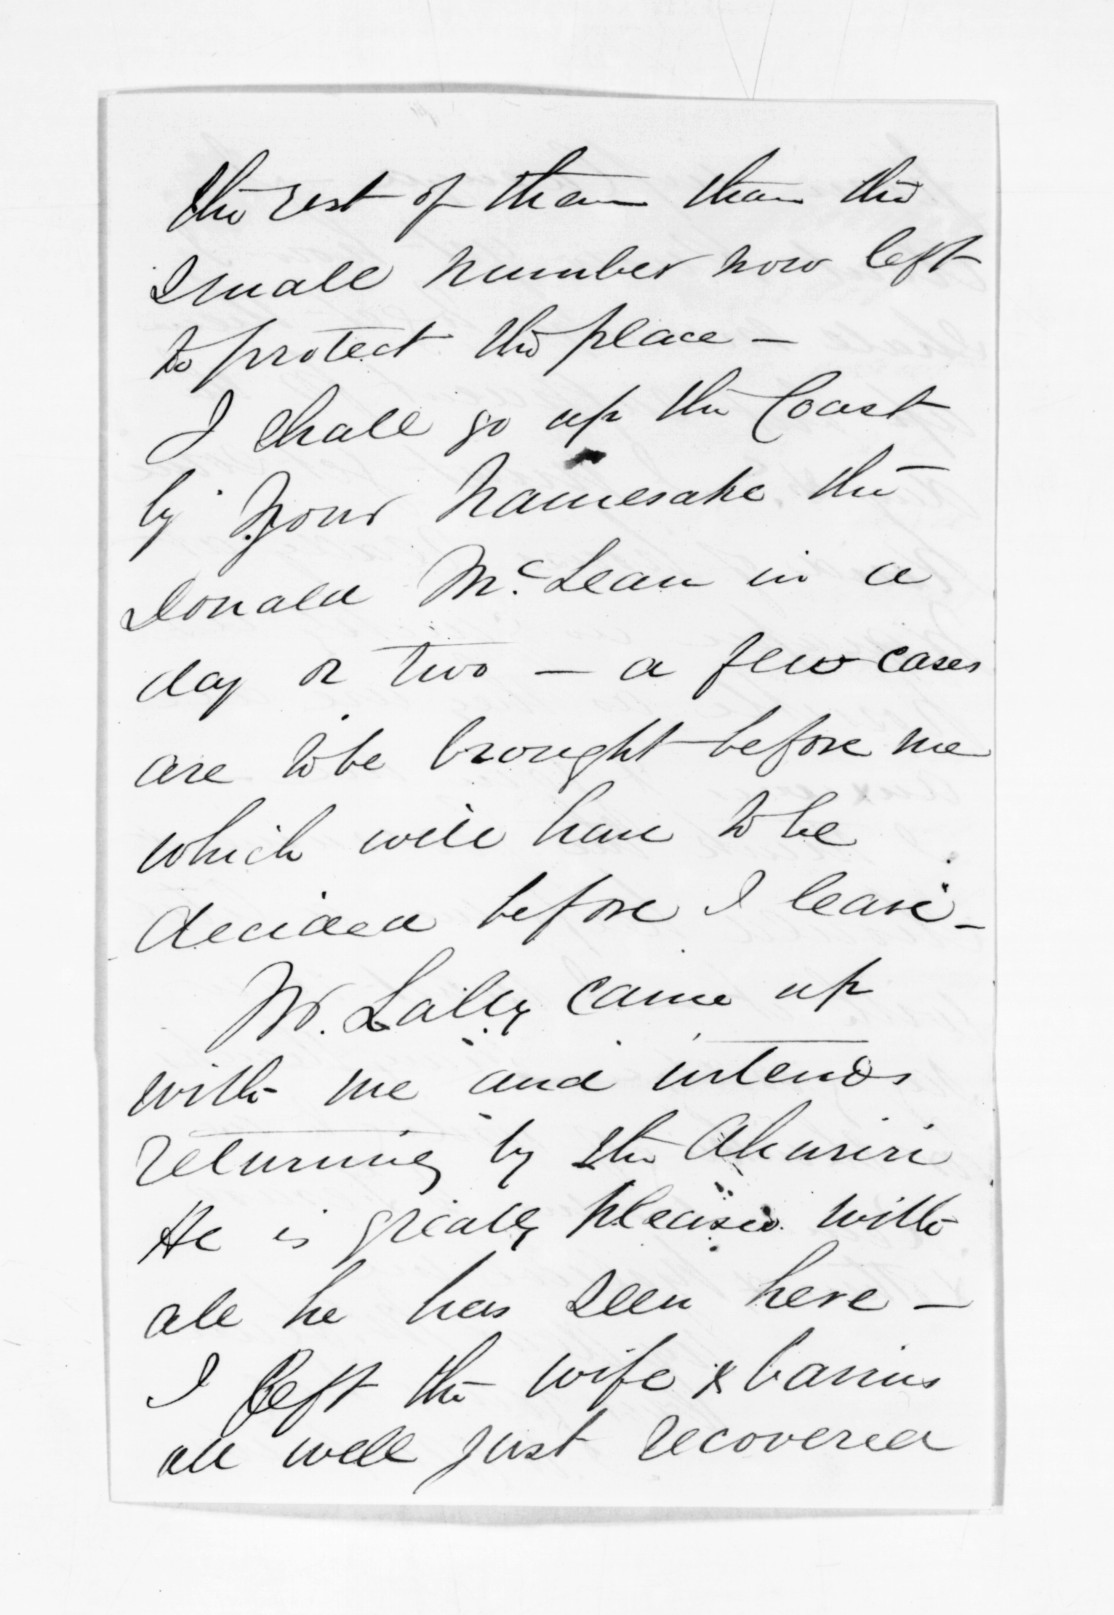 the rest of them than the
small number now left
to protect the place —
I shall go up the Coast
by your namesake the
Donald McLean in a
day or two — a few cases
are to be brought before me
which will have to be
decided before I leave —
Mr. Lally came up
with me and intends
returning by the Ahuriri
He is greatly pleased with
all he has seen here —
I left the wife & bairns
all well just recovered